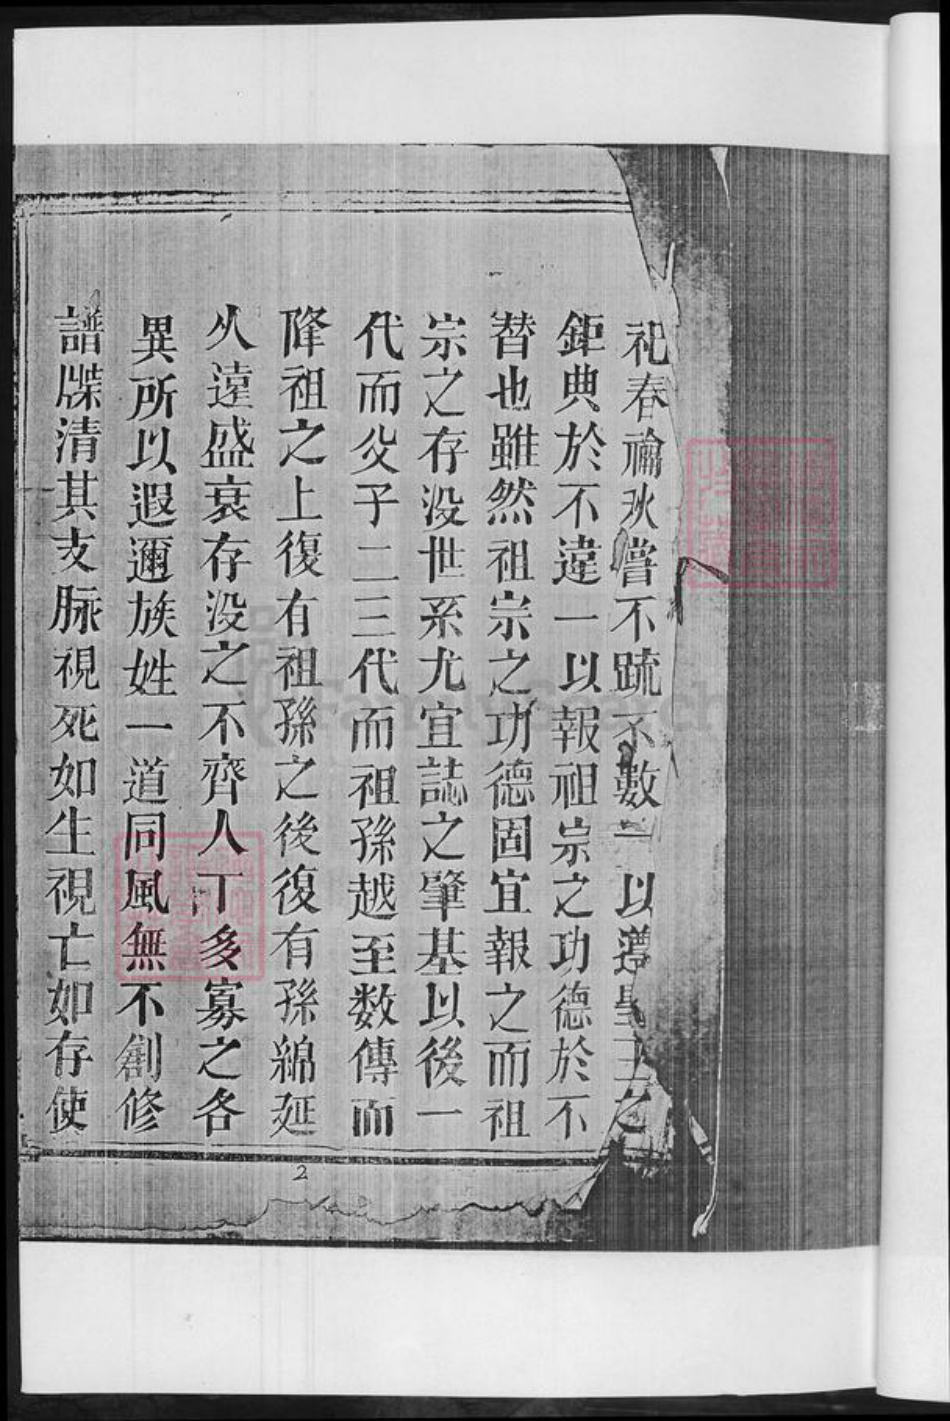 祀春禴秋嘗不疏不數一以遵王之
鉅典於不違一以報祖宗之功德於不
替也雖然祖宗之功德固宜報之而祖
宗之存没世系尤宜誌之肇基以後一
代而父子二三代而祖孫越至数傳而
降祖之上復有祖孫之後復有孫綿延
久遠盛衰存没之不齊人丁多寡之各
異所以遐邇族姓一道同風無不創修
譜牒清其支脉視死如生視亡如存使
2